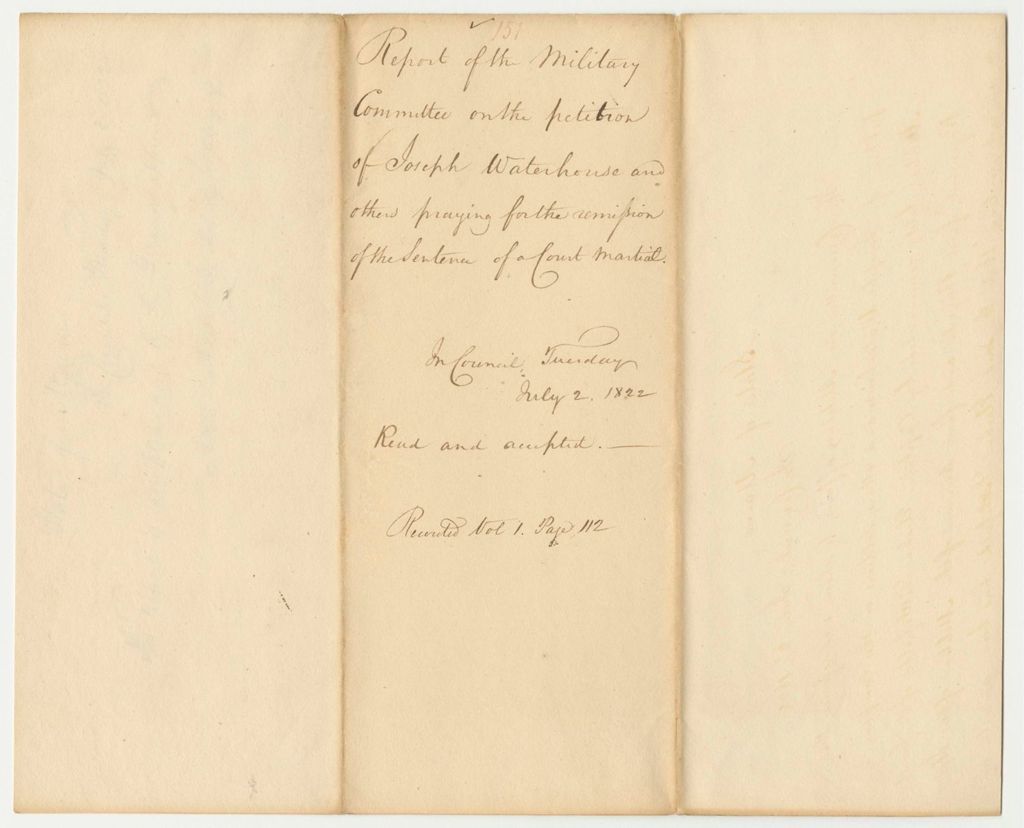 151
Report of the Military
Committee on the petition
of Joseph Waterhouse and
others praying for the remission
of the Sentence of a Court Martial.
In Council, Tuesday
July 2. 1822
Read and accepted. —
Recorded Vol 1. Page 112